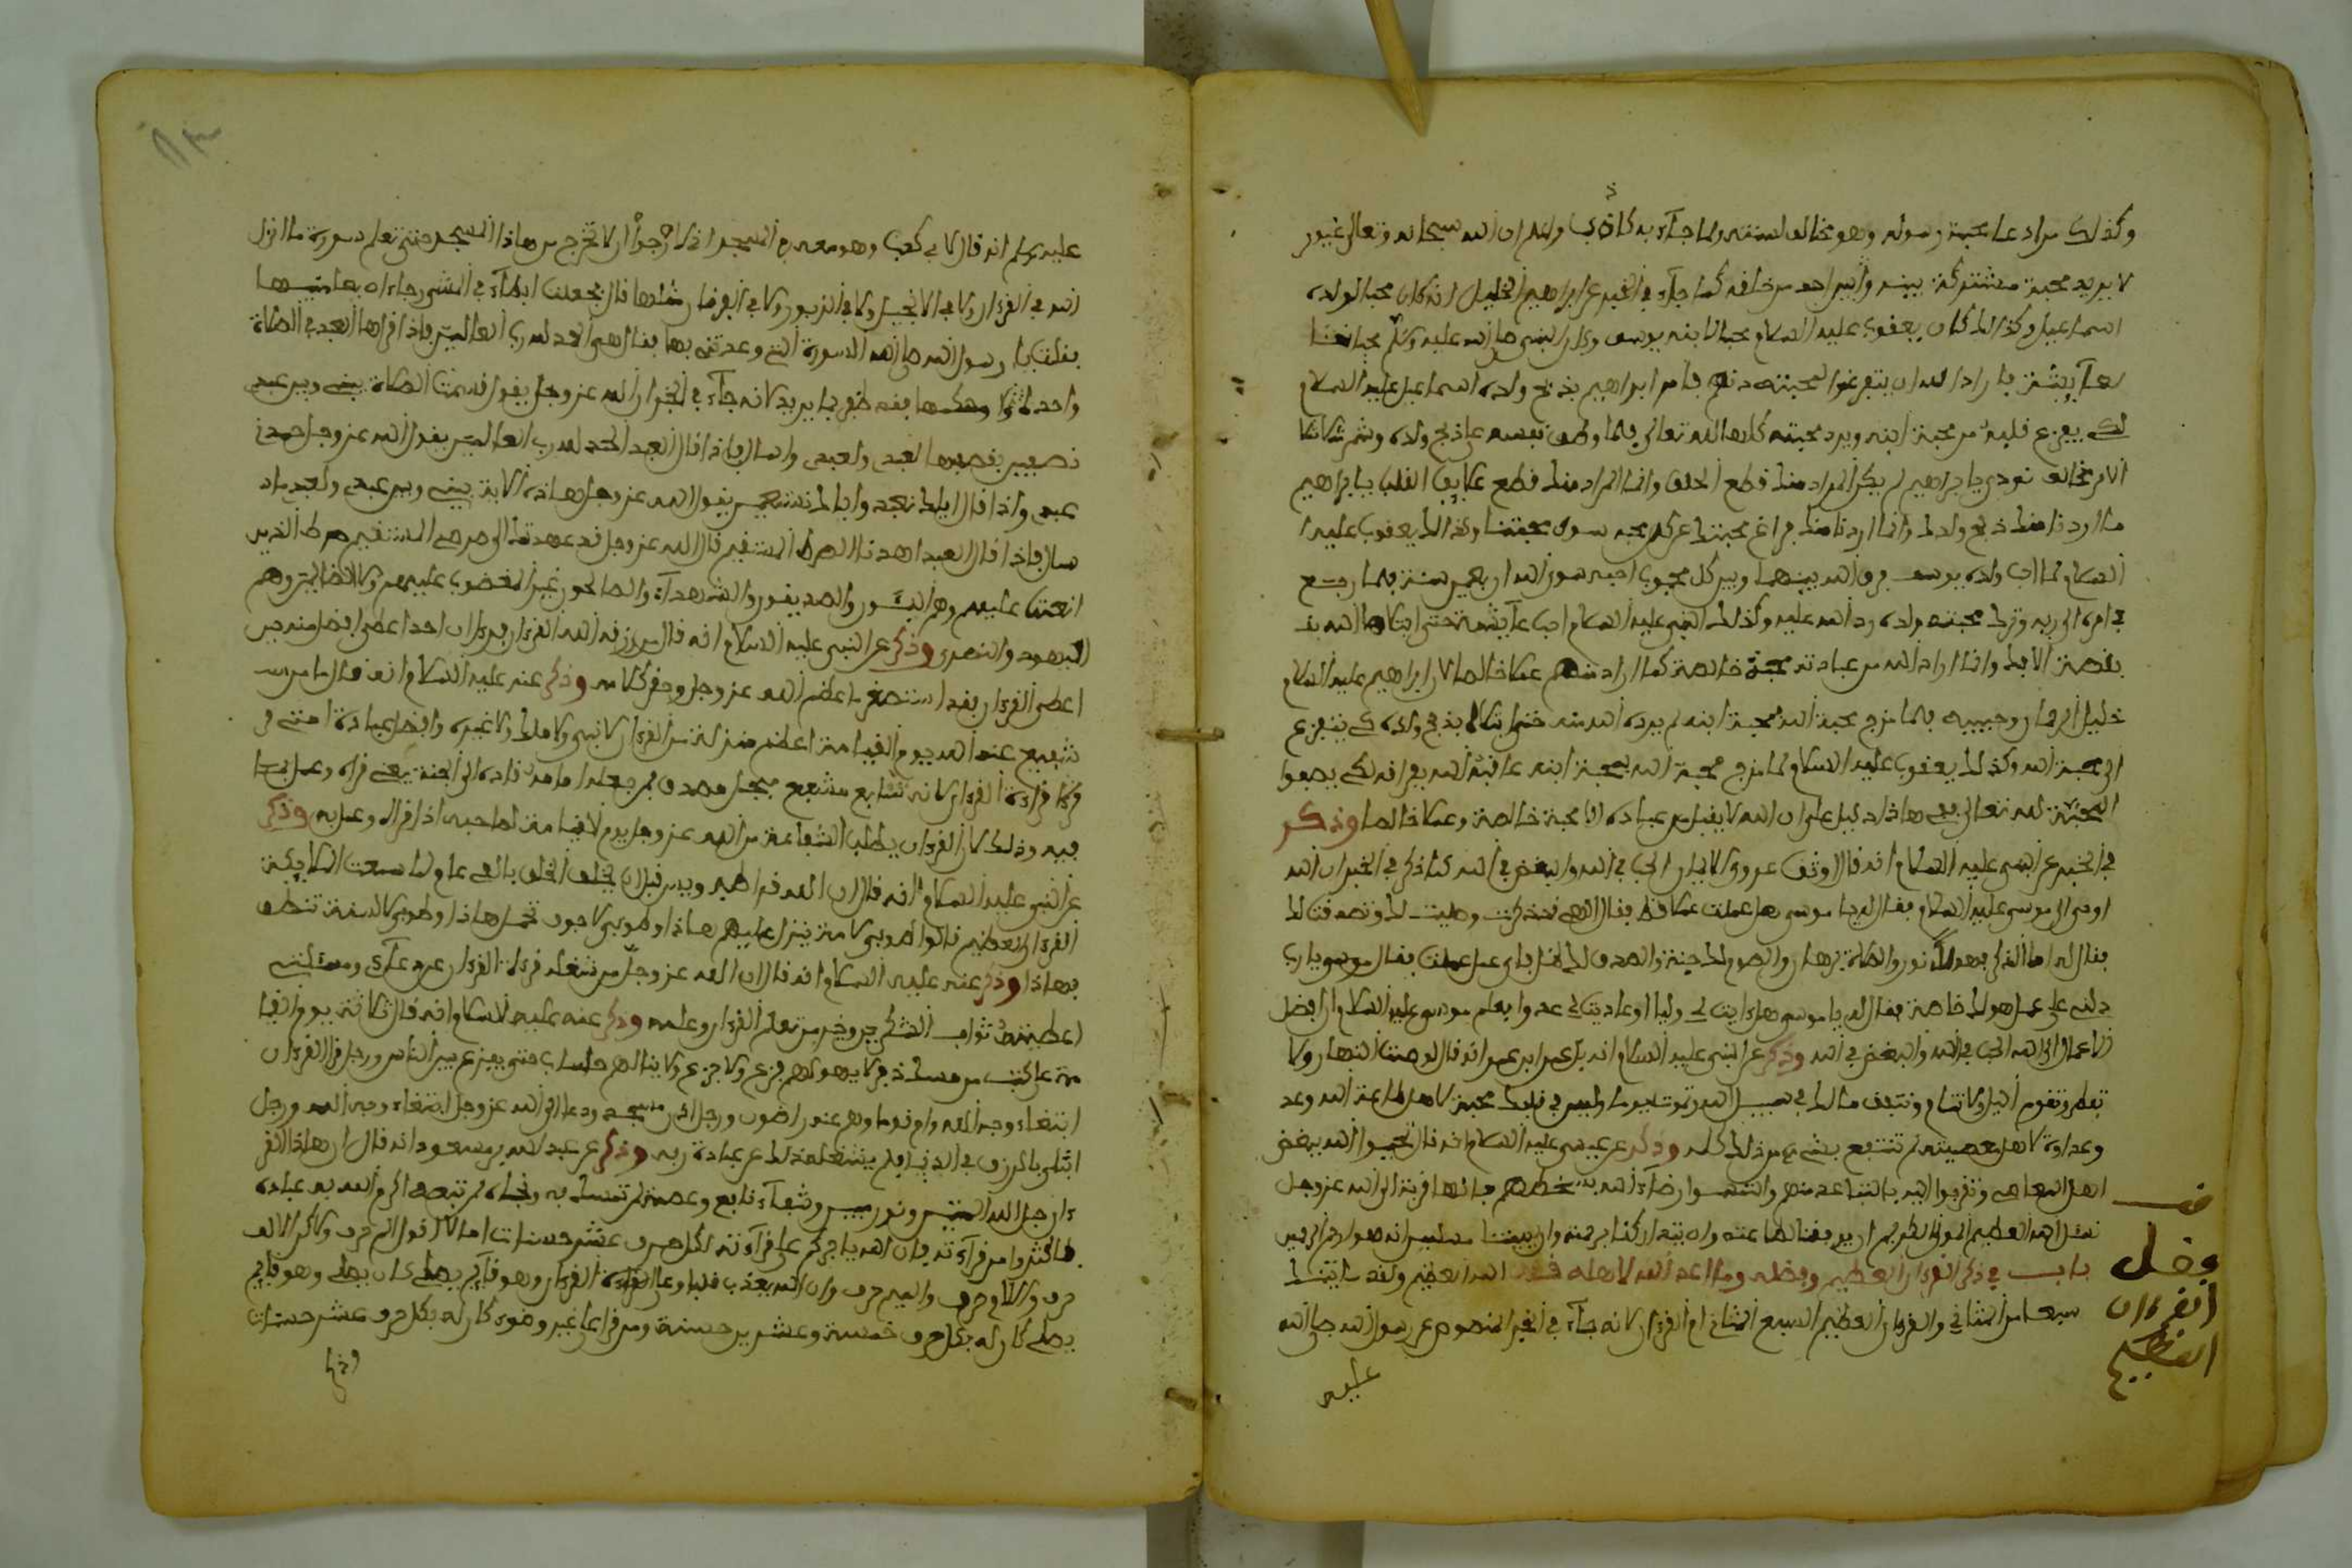 وكذلك من ادعا محبة رسوله وهو مخالف لسنته ولما جآء به كاذب واعلم ان الله سبحانه وتعالى غيور
لا يريد محبة مشتركة بينه وبين احد من خلقه كما جآء في الخبر عن ابراهيم الخليل انه كان محبا لولده
اسماعيل وكذلك كان يعقوب عليه السلام محبا لابنه يوسف وكان النبي صلى الله عليه وسلم محبا
لعآيشة فاراد الله ان يتفرغوا لمحبته فامر ابراهيم بذبح ولده اسماعيل عليه السلام
لكي يفرغ قلبه من محبة ابنه ويرد محبته كلها لله تعالى فلما وطن نفسه على ذبح ولده وشمر
نودي يا ابراهيم لم يكن المراد منك قطع الحلق وانما المراد منك قطع علايق القلب يا ابراهيم
ما اردنا منك ذبح ولدك وانما اردنا منك فراغ محبتك عن كل محبه سوى محبتنا وكذلك يعقوب عليه
السلام لما احب ولده يوسف فرق الله بينهما وبين كل محبوب احبه سوى الله اربعين سنة فلما رجع
في امره الى ربه وترك محبته ولده رد الله عليه وكذلك النبي عليه السلام احب عآيشة حتى ابتلاها الله
بقصة الافك وانما اراد الله من عباده محبة خالصة كما اراد منهم عملا خالصا لان ابراهيم عليه السلام
خليل الرحمان وحبيبه فلما مزج محبة الله بمحبة ابنه لم يرده الله منه حتى ابتلاه بذبح ولده كي يتفرغ
الى محبة الله وكذلك يعقوب عليه السلام لما مزج محبة الله بمحبة ابنه عاقبه الله بفراقه لكي يصفوا
المحبة لله تعالى ففي هاذا دليل على ان الله لا يقبل من عباده الا محبة خالصة وعملا خالصا وذكر
في الخبر عن النبي عليه السلام انه قال اوثق عروى الايمان الحب في الله والبغض في الله كما ذكر في الخبر ان الله
اوحى الى موسى عليه السلام فقال له يا موسى هل عملت عملا قط فقال الاهي ذكرت وصليت لك وتصدقت لك
فقال له اما الذكر فهو لك نور والصلاة برهان والصوم لك جنة والصدقة لك ظل فاي عمل عملت فقال موسى يا رب
دلني على عمل هو لك خاصة فقال له يا موسى هل واليت لي وليا او عاديت لي عدوا فعلم موسى عليه السلام ان افضل
الاعمال الى الله الحب في الله والبغض في الله وذكر عن النبي عليه السلام انه قال لو صمت النهار ولا
تفطر وتقوم اليل ولا تنام وتنفق مالك في سبيل الله وتموت يوما وليس في قلبك محبة لاهل طاعة الله وعد
وعداوة لاهل معصيته لم تنتفع بشيء من ذلك كله وذكر عن عيسى عليه السلام انه قال تحببوا الى الله ببغض
اهل المعاصي وتقربوا اليه بالتباعد منهم والتمسوا رضآء الله بسخطهم فانها قربة الى الله عز وجل
نسئل الله العظيم المولى الكريم ان يوفقنا لطاعته وان يتداركنا برحمته وان يميتنا مسلمين انه هو ارحم الراحمين
باب في ذكر القرءان العظيم وفضله وما اعد الله لاهله قال الله العظيم ولقد ءاتينك
سبعا من المثاني والقرءان العظيم السبع المثاني ام القرءان لانه جآء في الخبر المنصوص عن رسول الله صلى الله
عليه
فضل
القرءان
العظيم
عليه وسلم انه قال لابي كعب وهو معه في المسجد اني لارجوا ان لا تخرج من هاذا المسجد حتى تعلم سورة ما انزل
الله في القرءان ولا في الانجيل ولا في الزبور ولا في الفرقان مثلها قال فجعلت ابطآء في المشي رجاء ان
فقلت يا رسول الله صلى الله السورة التي وعدتني بها فقال هي الحمد لله رب العالمين فاذا قراها العبد في الصلاة
لانه جآء في الخبر ان الله عز وجل يقول قسمت الصلاة بيني وبين عبدي
نصفين فنصفها لعبدي ولعبدي ما سال فاذا قال العبد الحمد لله رب العالمين يقول الله عز وجل حمدني
عبدي واذا قال اياك نعبد واياك نستعين يقول الله عز وجل هاذه الاية بيني وبين عبدي ولعبدي ما
سال فاذا قال العبد اهدنا الصراط المستقيم قال الله عز وجل قد صراط الذين
انعمت عليهم وهم النبيئون والصديقون والشهدآء والصالحون غير المغضوب عليهم ولا الضالين وهم
اليهود والنصرى وذكر عن النبي عليه السلام انه قال من رزقه الله القرءان فيرى ان احدا اعطى افضل منه حين
اعطى القرءان فقد استصغر ما عظم الله عز وجل وحقر كلامه وذكر عنه عليه السلام انه قال ما من
شفيع عند الله يوم القيامة اعظم منزلة من القرءان لا نبي ولا ملك ولا غيره وافضل عبادة امتي
قراءة القرءان لانه شافع مشفع وماحل مصدق من جعله امامه قاده الى الجنة يعني قراه وعمل بما
فيه وذلك لان القرءان يطلب الشفاعة من الله عز وجل يوم القيامة لصاحبه اذا قراه وعمل به وذكر
عن النبي عليه السلام انه قال ان الله قرا طه ويس قبل ان يخلق الخلق بالفي عام ولما سمعت الملايكة
القرءان العظيم قالوا طوبى لامة ينزل عليهم هاذا وطوبى لاجوف تحمل هاذا وطوبى لالسنة تنطق
بهاذا وذكر عنه عليه السلام انه قال ان الله عز وجل من شغله قراءة القرءان عن دعآءي ومسئلتي
اعطيته ثواب الشاكرين وخير من تعلم القرءان وعلمه وذكر عنه عليه السلام انه قال ثلاثة يوم القيا
مة على كثيب من مسك اذفر لا يهولهم فزع ولا جزع ولا ينالهم حساب حتى يفرغ من بين الناس ورجل قرا القرءان
ابتغاء وجه الله وام قوما وهم عنه راضون ورجل اذن في مسجد ودعا الى الله عز وجل ابتغاء وجه الله ورجل
ابتلي بالرزق في الدنيا ولم يشغله ذلك عن عبادة ربه وذكر عن عبد الله بن مسعود انه قال ان هاذا القر
ءان حبل الله المتين ونور مبين وشفآء نافع وعصمة لمن تمسك به ونجاة لمن تبعه اكرم الله به عباده
فاكثروا من قرآءته فان الله ياجركم على قرآءته لكل حرف عشر حسنات اما لا اقول الم حرف ولاكن الالف
حرف واللام حرف والميم حرف وان الله لا يعذب قلبا وعى القرءان وهو قآيم يصلي كان يصلي وهو قآيم
يصلي كان له بكل حرف خمسة وعشرين حسنة ومن قرا على غير وضوء كان له بكل حرف عشر حسنات